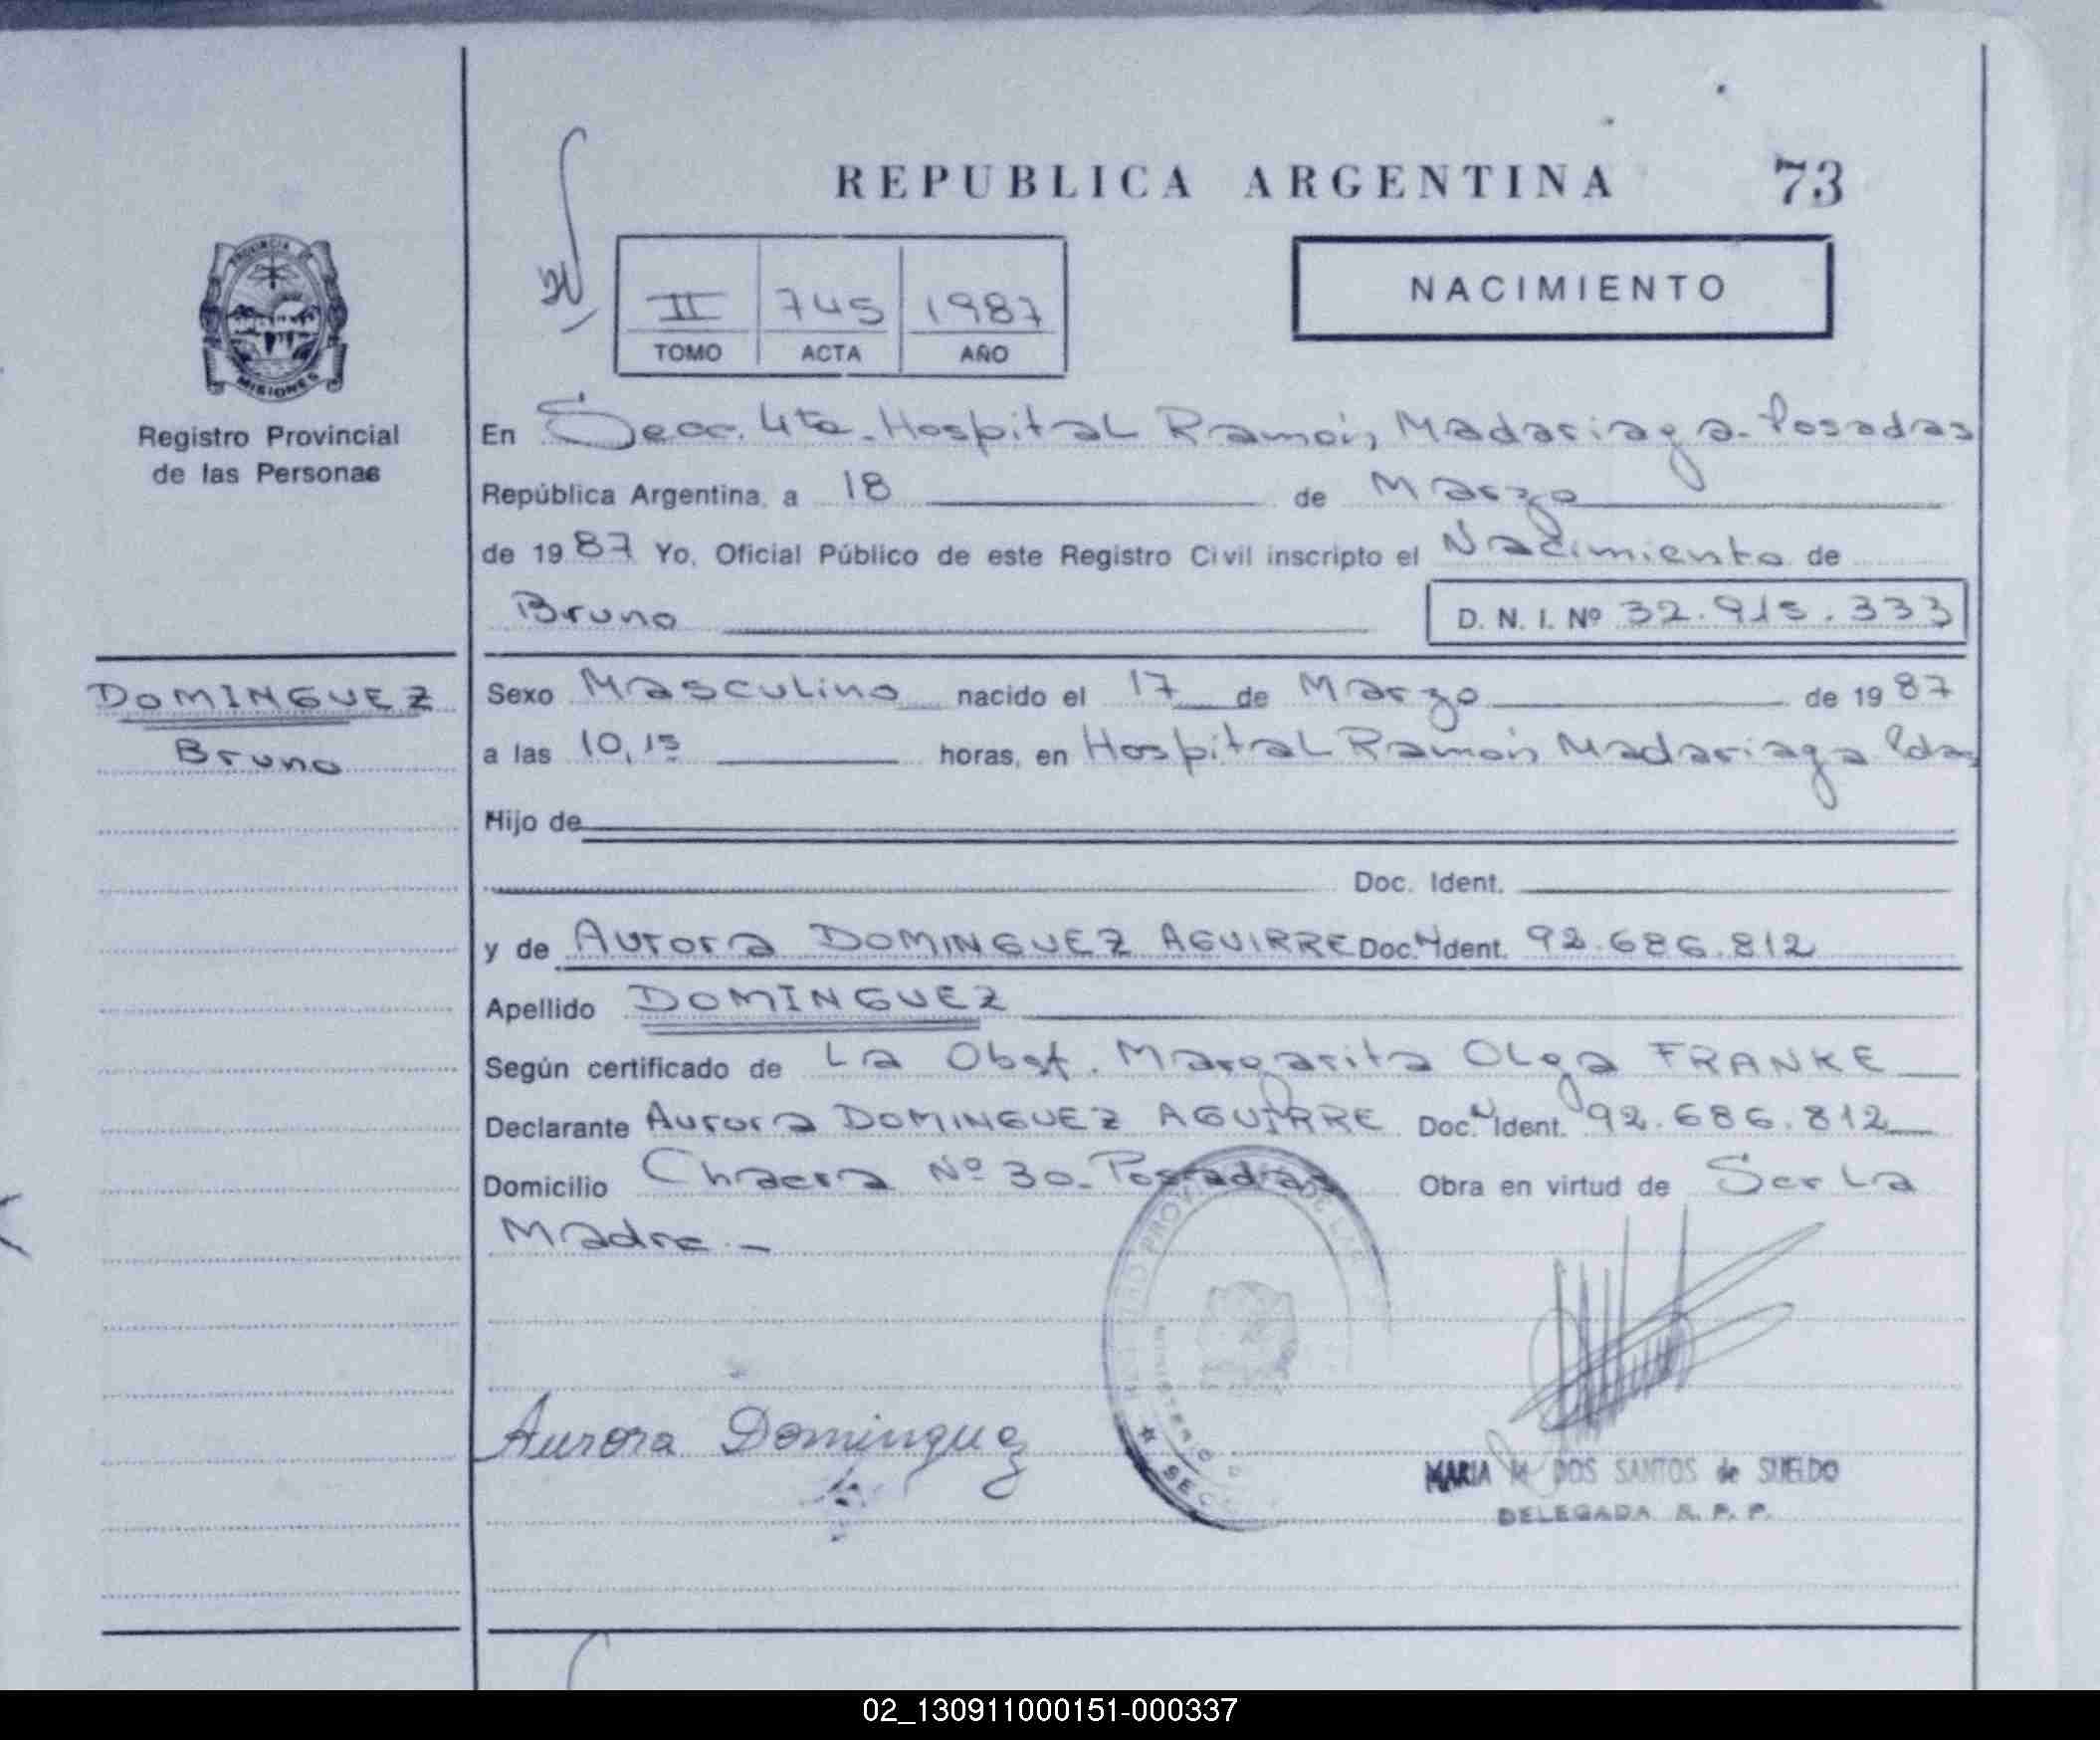 REPUBLICA ARGENTINA 73
PROVINCIA DE
MISIONES
Registro Provincial
de las Personas
II 745 1987
TOMO ACTA AÑO
NACIMIENTO
En Secc. 4ta. Hospital Ramón Madariaga - Posadas
República Argentina, a 18 de Marzo
de 1987 Yo, Oficial Público de este Registro Civil inscripto el Nacimiento de
Bruno D. N. I. Nº 32.915.333
DOMINGUEZ
Bruno
Sexo Masculino nacido el 17 de Marzo de 1987
a las 10,15 horas, en Hospital Ramón Madariaga Pdas
Hijo de
Doc. Ident.
y de Aurora DOMINGUEZ AGUIRRE Doc. Ident. 92.686.812
Apellido DOMINGUEZ
Según certificado de La Obst. Margarita Olga FRANKE
Declarante Aurora DOMINGUEZ AGUIRRE Doc. Ident. 92.686.812
Domicilio Chacra Nº 30 - Posadas Obra en virtud de Ser La
Madre.-
Aurora Dominguez
MARIA M. DOS SANTOS de SUELDO
DELEGADA R. P. P.
02_130911000151-000337